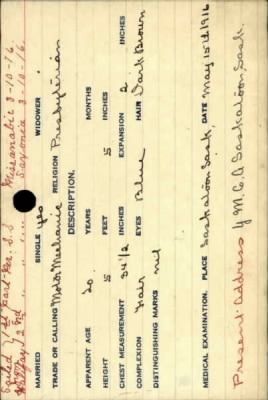 Sailed
Missanabie 3-10-16
Saxonia 3-10-16.
MARRIED SINGLE yes WIDOWER .
TRADE OR CALLING Motor Mechanic RELIGION Presbyterian
DESCRIPTION.
APPARENT AGE 20 YEARS MONTHS
HEIGHT 5 FEET 5 INCHES
CHEST MEASUREMENT 34 1/2 INCHES EXPANSION 2 INCHES
COMPLEXION Fair EYES Blue HAIR Dark Brown
DISTINGUISHING MARKS nil
MEDICAL EXAMINATION. PLACE Saskatoon Sask. DATE May 15th 1916
Present Address Y.M.C.A Saskatoon Sask.